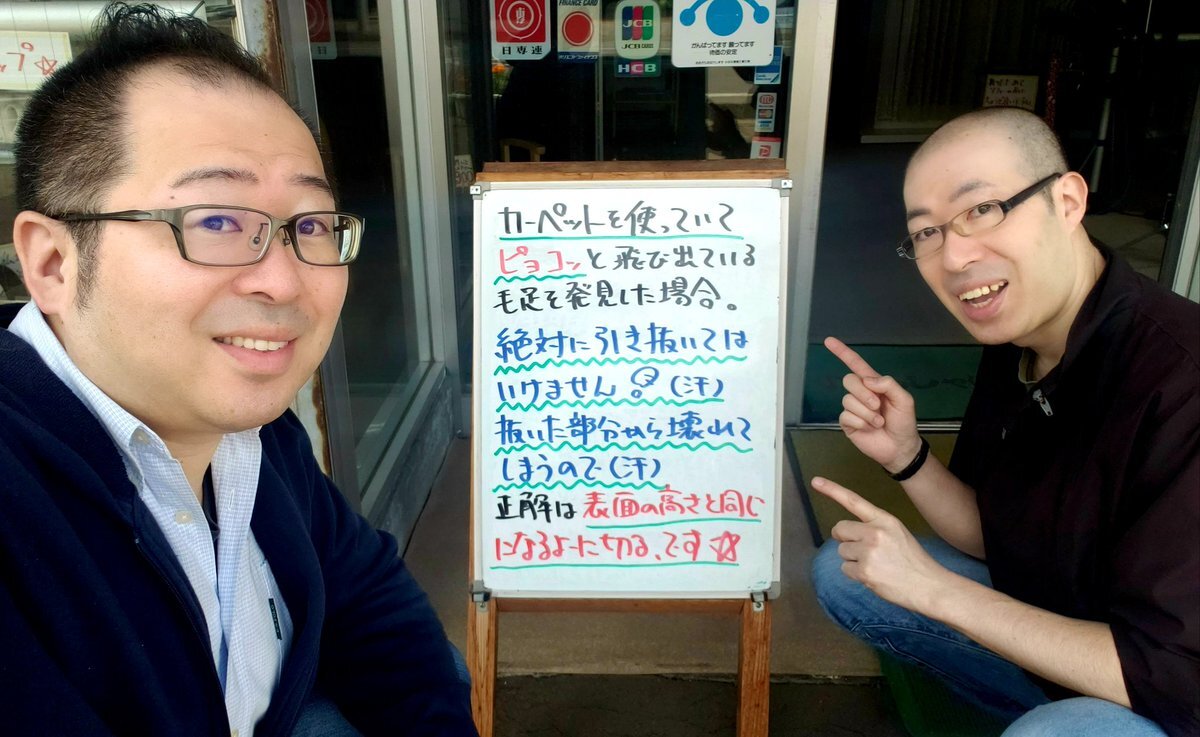 日専連
FINANCE CARD
JCB
JCB CARD
HCB
がんばってます 願ってます
物価の安定
カーペットを使っていて
ピョコッと飛び出ている
毛足を発見した場合。
絶対に引き抜いては
いけません!(汗)
抜いた部分から壊れて
しまうので(汗)
正解は表面の高さと同じ
になるように切る、です☆